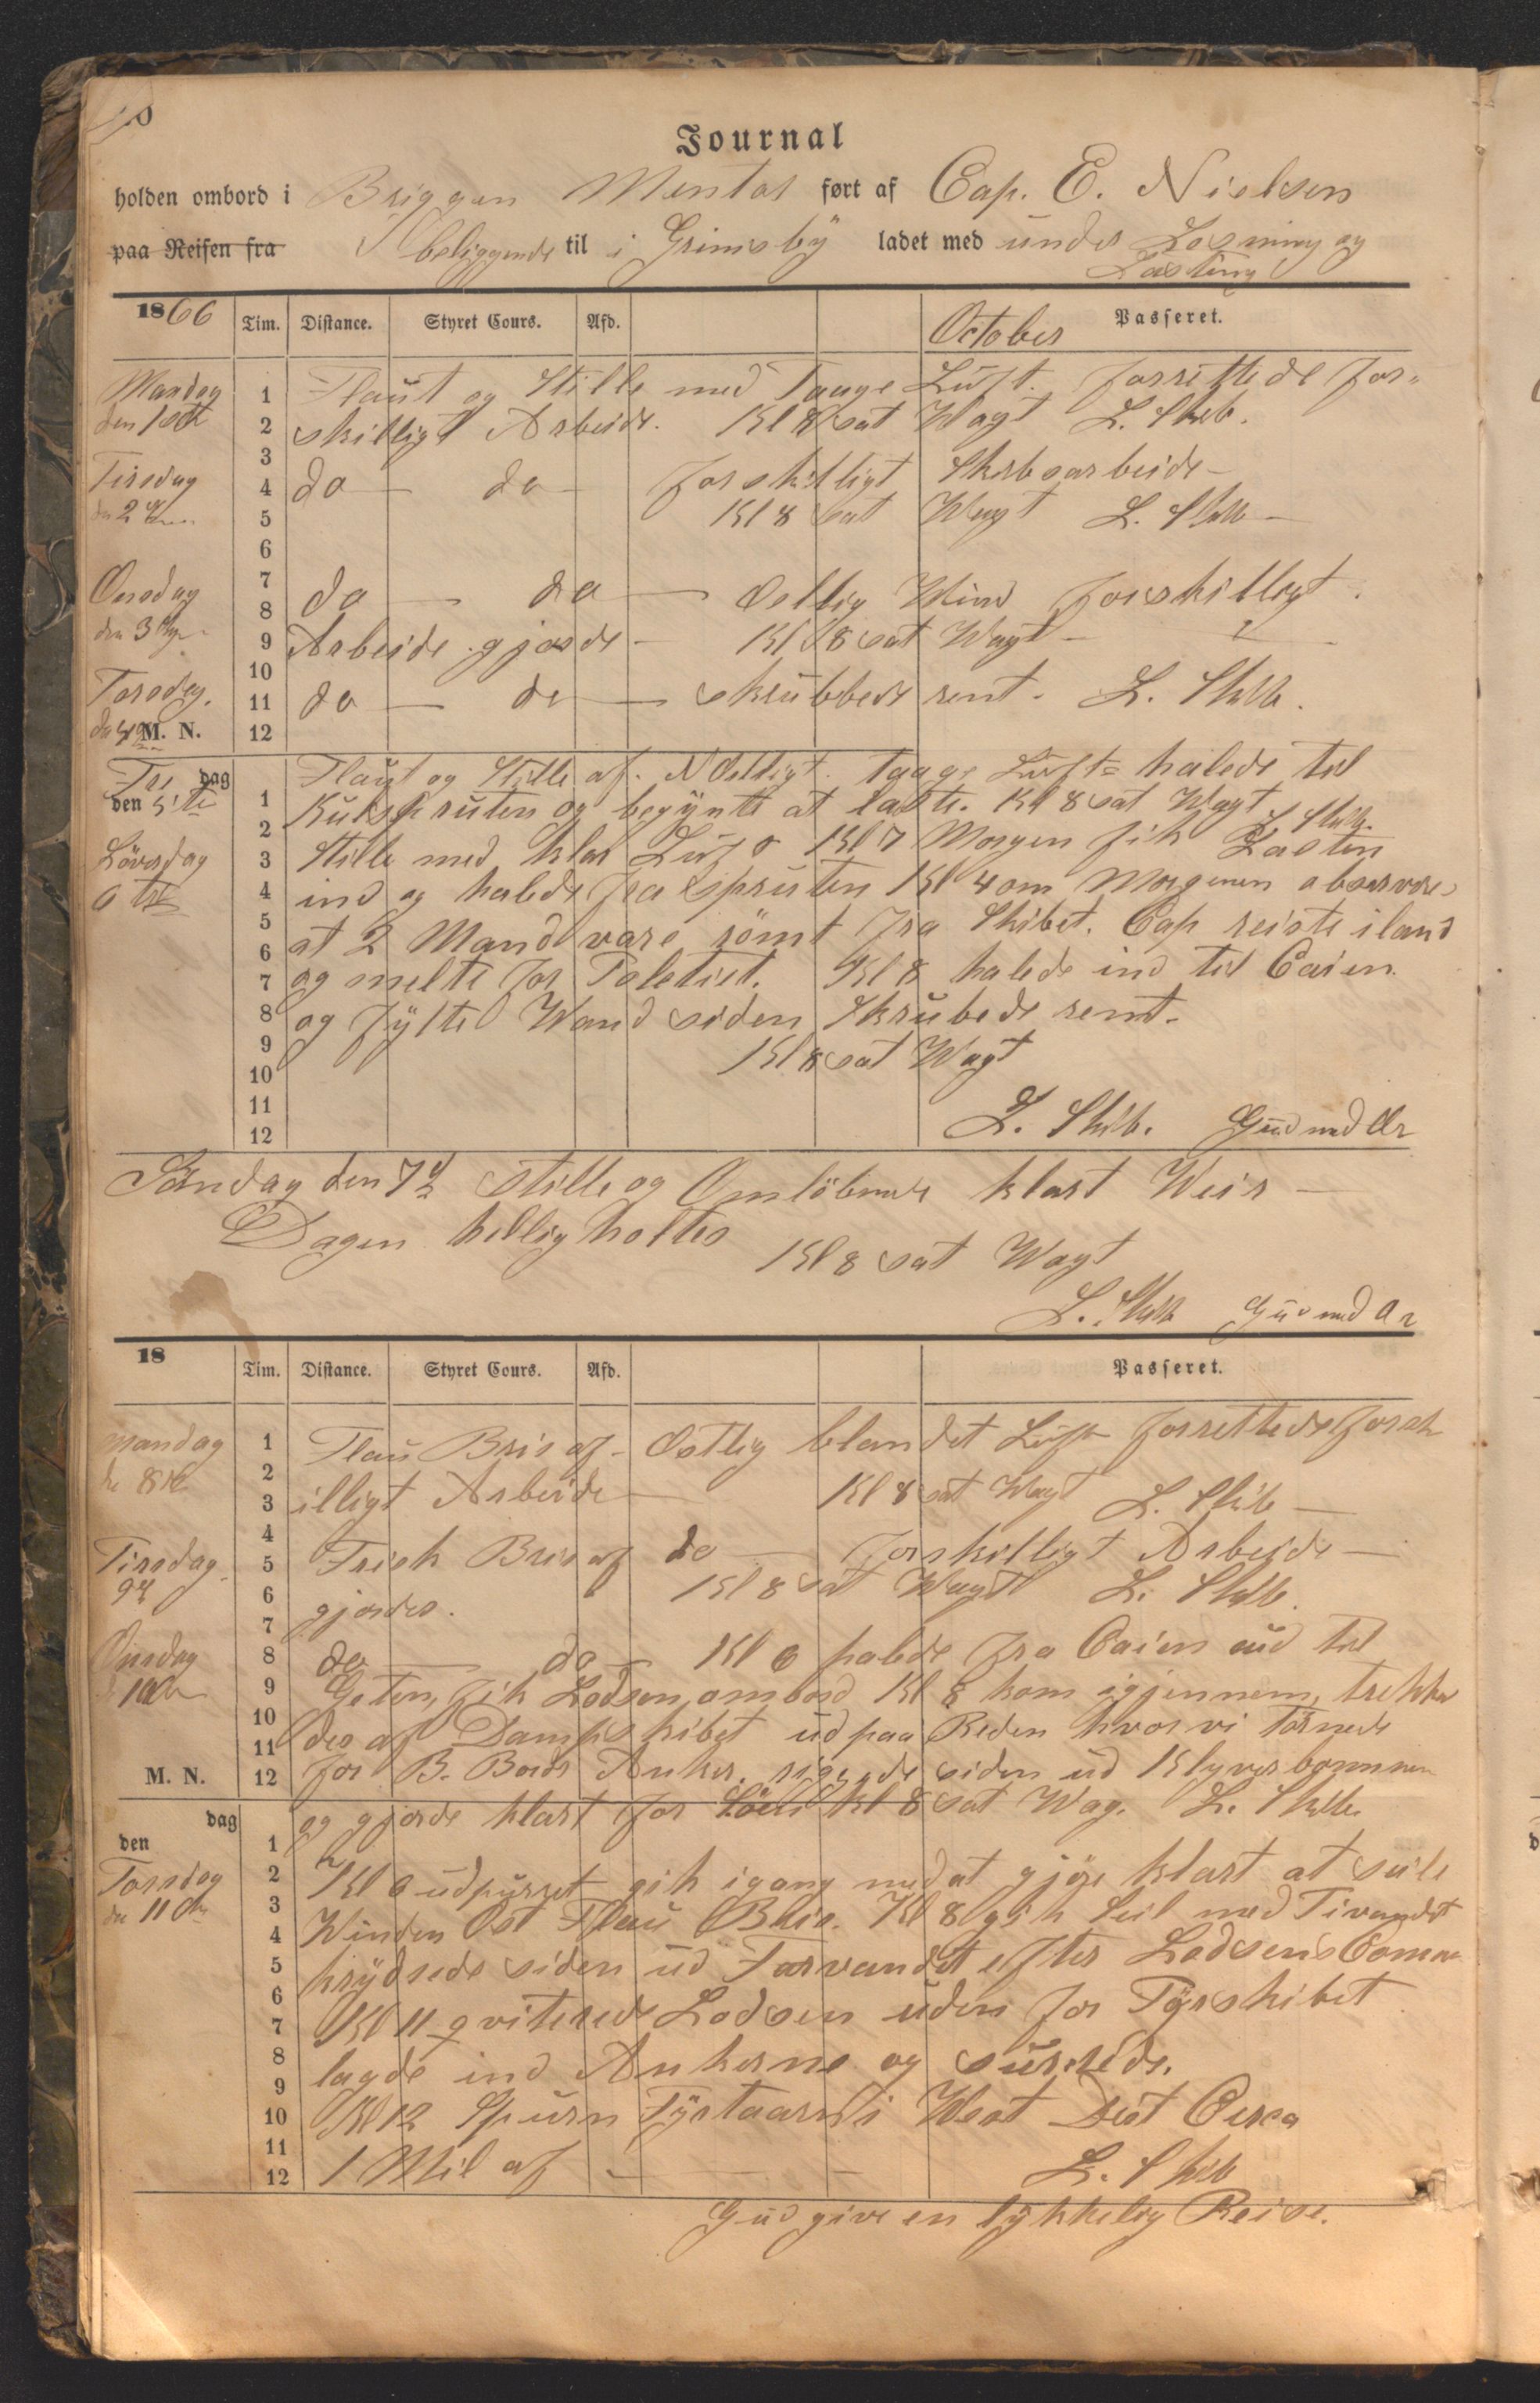 Journal
holden ombord i Briggen Mentor ført af Cap. E. Nielsen
paa Reisen fra beliggende til i Grimsby ladet med under Losning og
Lastning
1866 Tim. Distance. Styret Cours. Afd. October Passeret.
Mandag 1 Flaut og Stille med Taage Luft. forrettede for-
den 1ste 2 skilligt Arbeide. Kl 8 sat Wagt L. Skib.
3
Tirsdag 4 do — do — forskilligt Skibsarbeide —
den 2den 5 Kl 8 sat Wagt L. Skib —
6
Onsdag 7 do — do — Ostlig Wind forskilligt
den 3die 8
9 Arbeide gjorde — Kl 8 sat Wagt —
10
Torsdag. 11 do — do — skrubbede rent. L. Skib.
den 4de M. N. 12
Fre dag Flaut og Stille af NOstligt taage Luft halede til
den 5te 1 Kulspruten og begynte at laste. Kl 8 sat Wagt L. Skib.
2
Lövsdag 3 Stille med klar Luft Kl 7 Morgen fik Lasten
6te 4 ind og halede fra Spruten Kl 4 om Morgenen observere
5 at 2 Mand vare römt fra Skibet. Cap reiste iland
6
7 og melte for Poletiet. Kl 8 halede ind til Caien.
8 og fylte Wand siden Skrubede rent.
9 Kl 8 sat Wagt
10
11 L. Skib. Gud med Os
12
Söndag den 7de stille og Omlöbende klart Weir —
Dagen helligholtes Kl 8 sat Wagt
L. Skib Gud med Os
18 Tim. Distance. Styret Cours. Afd. Passeret.
Mandag 1 Flau Bris af Ostlig blandet Luft forrettede forsk
den 8de 2
3 illigt Arbeide — Kl 8 sat Wagt L. Skib —
4
Tirsdag 5 Frisk Bris af do — forskilligt Arbeide —
9de 6 gjordes. Kl 8 sat Wagt L. Skib.
7
Onsdag 8 do — do — Kl 6 halede fra Caien ud til
10de 9 Geten, fik Lodsen ombord Kl 8 kom igjennem, trekke
10 des af Dampskibet ud paa Reden hvor vi Törnede
11
M. N. 12 for B. Bords Anker. riggede siden ud Klyverbommen
dag og gjorde klart for Söen Kl 8 sat Wag. L. Skib
den 1
Torsdag 2 Kl 6 udpurret gik igang med at gjöre klart at seile
den 11te 3 Winden Ost Flau Bris. Kl 8 gik Seil med Tivandet
4
5 krydsede siden ud Farvandet efter Lodsens Comm
6
7 Kl 11 qviterede Lodsen uden for Fyrskibet
8 lagde ind Ankerne og surrede.
9
10 Kl 12 Spurn Fyrtaarn i West Dist Circa
11
12 1 Mil af — L. Skib
Gud give en lykkelig Reise.